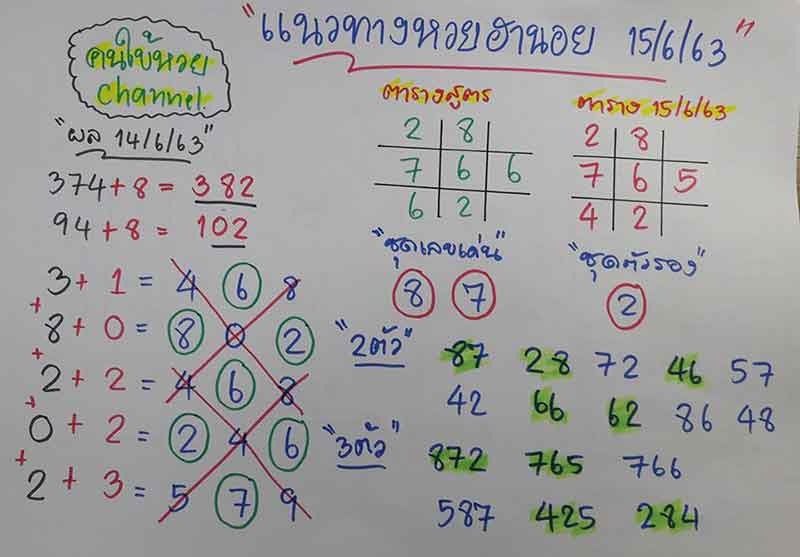 "แนวทางหวยฮานอย 15/6/63"
คนใบ้หวย
channel
"ผล 14/6/63"
374+8 = 382
94+8 = 102
3+1 = 4 6 8
+
8+0 = 8 0 2
+
2+2 = 4 6 8
+
0+2 = 2 4 6
+
2+3 = 5 7 9
ตารางสูตร
2 8
7 6 6
6 2
ตาราง 15/6/63
2 8
7 6 5
4 2
"ชุดเลขเด่น"
8 7
"ชุดตัวรอง"
2
"2ตัว" 87 28 72 46 57
42 66 62 86 48
"3ตัว" 872 765 766
587 425 284